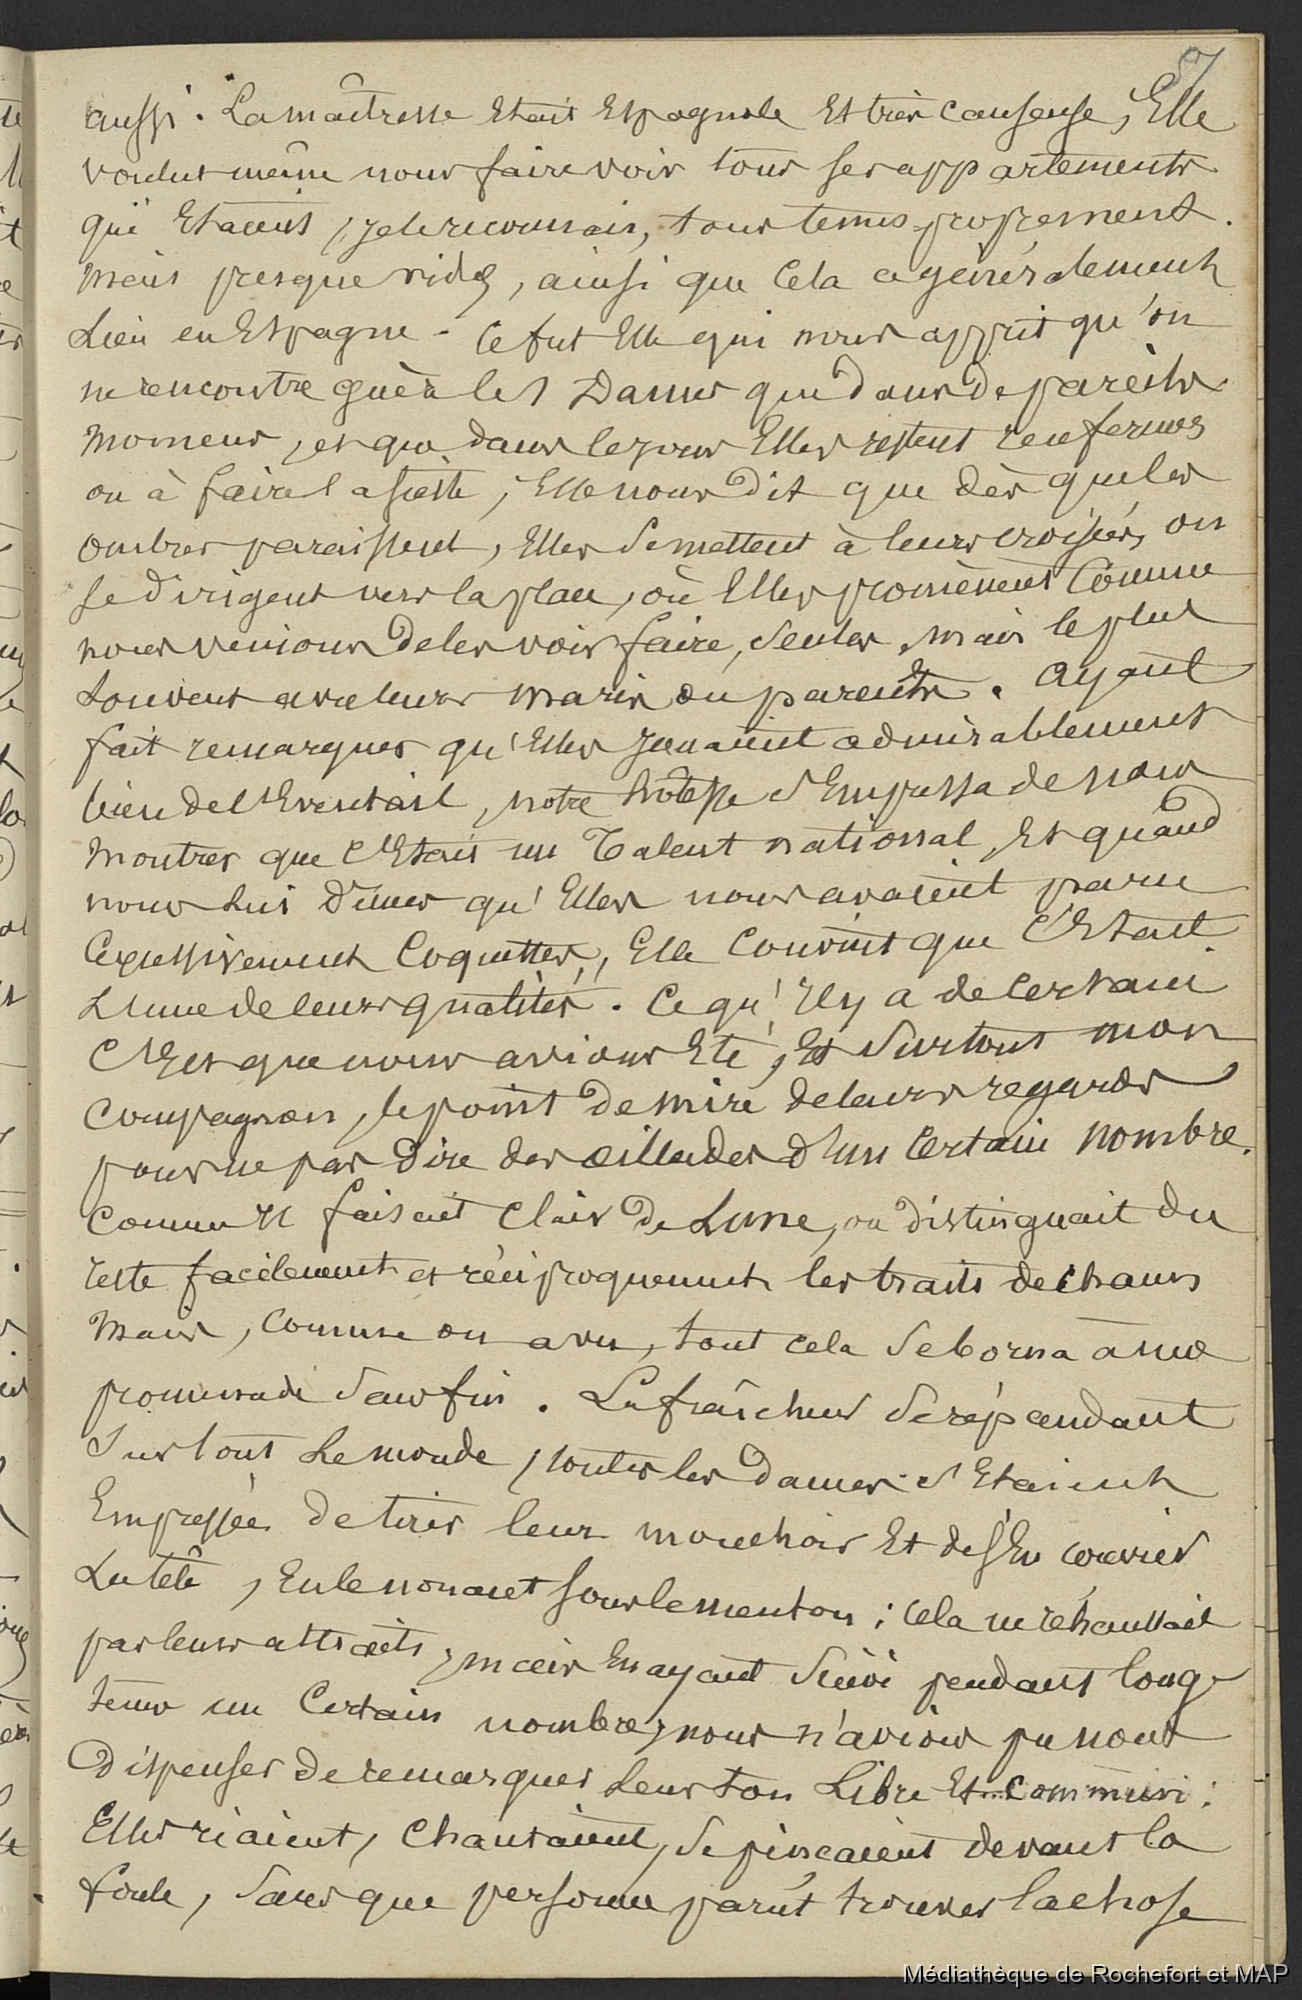 57
aussi. La maîtresse Etait Espagnole Et très causeuse, Elle
voulut même nous faire voir tous ses appartements
qui Etaient, je le reconnais, tous tenus proprement.
Mais presque vides, ainsi que cela a généralement
Lieu en Espagne. Ce fut Elle qui nous apprit qu'on
ne rencontre guère les Dames que dans de pareils
moments, et que dans le jour Elles restent renfermées
ou à faire la sieste; Elle nous dit que dès que les
ombres paraissent, Elles se mettent à leurs croisées, ou
se dirigent vers la place, où Elles promènent comme
nous venions de les voir faire, seules, mais le plus
souvent avec leurs maris ou parents. Ayant
fait remarquer qu'Elles jouaient admirablement
bien de l'Eventail, notre hôtesse s'Empressa de nous
montrer que c'Etait un Talent national, Et quand
nous lui dîmes qu'Elles nous avaient paru
Excessivement Coquettes, Elle convint que c'Etait
L'une de leurs qualités. Ce qu'Il y a de certain
c'Est que nous avions Eté, Et surtout mon
compagnon, le point de mire de leurs regards
pour ne pas dire des œillades d'un certain nombre.
Comme Il faisait clair de Lune, on distinguait du
reste facilement et réciproquement les traits de chacun
Mais, comme on a vu, tout cela se borna à une
promenade sans fin. La fraîcheur se répandant
sur tout Le monde, toutes les dames s'Etaient
Empressées de tirer leur mouchoir Et de s'En couvrir
La tête, En le nouant sous le menton; cela ne réhaussait
pas leurs attraits, mais En ayant suivi pendant long-
temps un Certain nombre, nous n'avions pu nous
dispenser de remarquer Leur ton Libre Et commun:
Elles riaient, chantaient, se pinçaient devant la
foule, sans que personne parût trouver la chose
Médiathèque de Rochefort et MAP